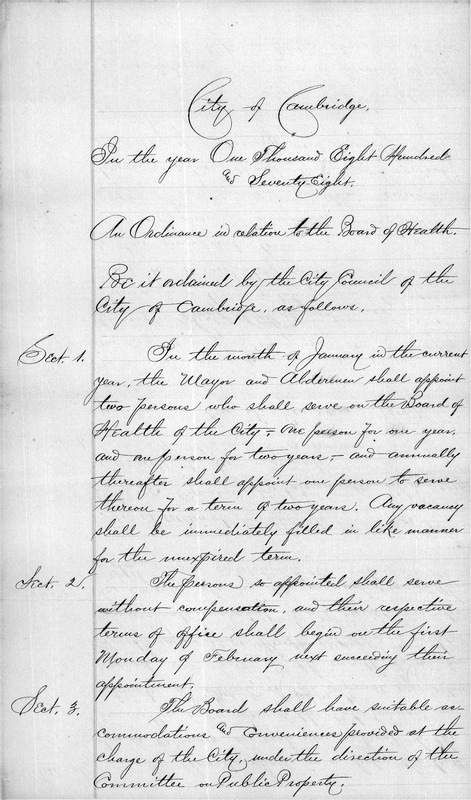 City of Cambridge.
In the year One Thousand Eight Hundred
and Seventy Eight.
An Ordinance in relation to the Board of Health.
Be it ordained by the City Council of the
City of Cambridge, as follows.
Sect. 1. In the month of January in the current
year, the Mayor and Aldermen shall appoint
two persons who shall serve on the Board of
Health of the City; one person for one year,
and one person for two years, – and annually
thereafter shall appoint one person to serve
thereon for a term of two years. Any vacancy
shall be immediately filled in like manner
for the unexpired term.
Sect. 2. The persons so appointed shall serve
without compensation, and their respective
terms of office shall begin on the first
Monday of February next succeeding their
appointment.
Sect. 3. The Board shall have suitable ac-
commodations and conveniences provided at the
charge of the City, under the direction of the
Committee on Public Property.